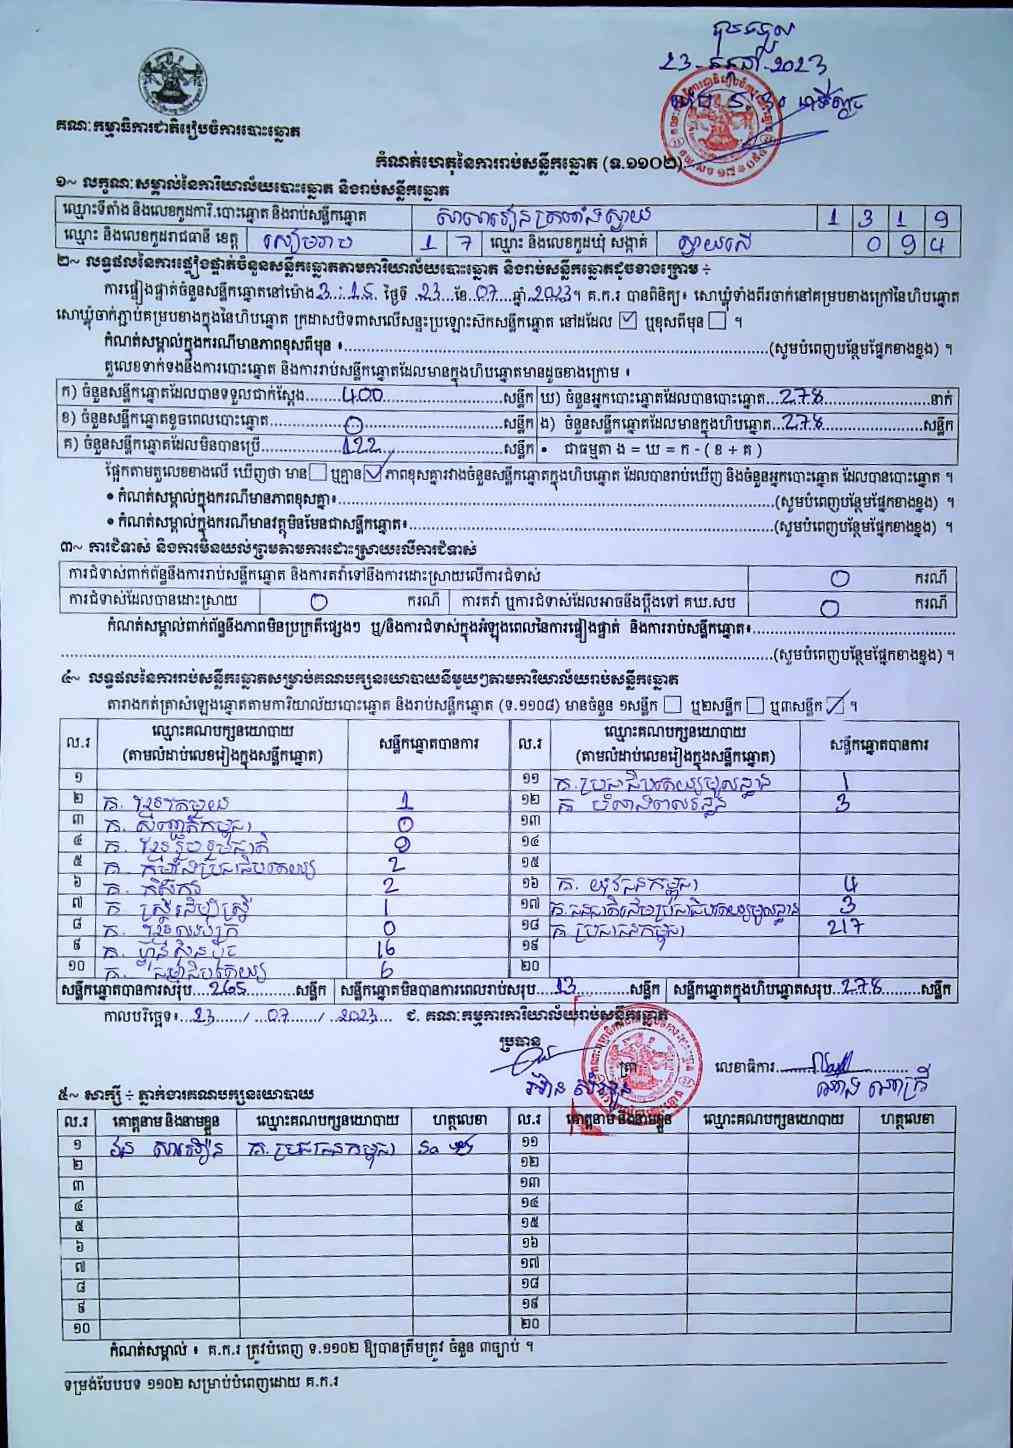 23 កក្កដា 2023
គណៈកម្មាធិការជាតិរៀបចំការបោះឆ្នោត
កំណត់ហេតុនៃការរាប់សន្លឹកឆ្នោត (ទ.១១០២)
១~ លក្ខណៈសម្គាល់នៃការិយាល័យបោះឆ្នោត និងរាប់សន្លឹកឆ្នោត
ឈ្មោះទីតាំង និងលេខកូដការិ.បោះឆ្នោត និងរាប់សន្លឹកឆ្នោត សាលារៀនត្រពាំងស្វាយ 1 3 1 9
ឈ្មោះ និងលេខកូដរាជធានី ខេត្ត សៀមរាប 1 7 ឈ្មោះ និងលេខកូដឃុំ សង្កាត់ ស្វាយលើ 0 9 4
២~ លទ្ធផលនៃការផ្ទៀងផ្ទាត់ចំនួនសន្លឹកឆ្នោតតាមការិយាល័យបោះឆ្នោត និងរាប់សន្លឹកឆ្នោតដូចខាងក្រោម ÷
ការផ្ទៀងផ្ទាត់ចំនួនសន្លឹកឆ្នោតនៅម៉ោង 3:15 ថ្ងៃទី 23 ខែ 07 ឆ្នាំ 2023។ គ.ក.រ បានពិនិត្យ៖ សោឃ្លុំទាំងពីរចាក់នៅគម្របខាងក្រៅនៃហិបឆ្នោត
សោឃ្លុំចាក់ភ្ជាប់គម្របខាងក្នុងនៃហិបឆ្នោត ក្រដាសបិទពាសលើសន្ទះប្រឡោះស៊កសន្លឹកឆ្នោត នៅដដែល ☑ ឬខុសពីមុន ☐ ។
កំណត់សម្គាល់ក្នុងករណីមានភាពខុសពីមុន ៖ (សូមបំពេញបន្ថែមផ្នែកខាងខ្នង) ។
តួលេខទាក់ទងនឹងការបោះឆ្នោត និងការរាប់សន្លឹកឆ្នោតដែលមានក្នុងហិបឆ្នោតមានដូចខាងក្រោម ៖
ក) ចំនួនសន្លឹកឆ្នោតដែលបានទទួលជាក់ស្តែង 400 សន្លឹក ឃ) ចំនួនអ្នកបោះឆ្នោតដែលបានបោះឆ្នោត 278 នាក់
ខ) ចំនួនសន្លឹកឆ្នោតខូចពេលបោះឆ្នោត 0 សន្លឹក ង) ចំនួនសន្លឹកឆ្នោតដែលមានក្នុងហិបឆ្នោត 278 សន្លឹក
គ) ចំនួនសន្លឹកឆ្នោតដែលមិនបានប្រើ 122 សន្លឹក • ជាធម្មតា ង = ឃ = ក - ( ខ + គ )
ផ្អែកតាមតួលេខខាងលើ ឃើញថា មាន ☐ ឬគ្មាន ☑ ភាពខុសគ្នារវាងចំនួនសន្លឹកឆ្នោតក្នុងហិបឆ្នោត ដែលបានរាប់ឃើញ និងចំនួនអ្នកបោះឆ្នោត ដែលបានបោះឆ្នោត ។
• កំណត់សម្គាល់ក្នុងករណីមានភាពខុសគ្នា៖ (សូមបំពេញបន្ថែមផ្នែកខាងខ្នង) ។
• កំណត់សម្គាល់ក្នុងករណីមានវត្ថុមិនមែនជាសន្លឹកឆ្នោត៖ (សូមបំពេញបន្ថែមផ្នែកខាងខ្នង) ។
៣~ ការជំទាស់ និងការមិនយល់ព្រមតាមការដោះស្រាយលើការជំទាស់
ការជំទាស់ពាក់ព័ន្ធនឹងការរាប់សន្លឹកឆ្នោត និងការតវ៉ាទៅនឹងការដោះស្រាយលើការជំទាស់ 0 ករណី
ការជំទាស់ដែលបានដោះស្រាយ 0 ករណី ការតវ៉ា ឬការជំទាស់ដែលអាចនឹងប្តឹងទៅ គឃ.សប 0 ករណី
កំណត់សម្គាល់ពាក់ព័ន្ធនឹងភាពមិនប្រក្រតីផ្សេងៗ ឬ/និងការជំទាស់ក្នុងអំឡុងពេលនៃការផ្ទៀងផ្ទាត់ និងការរាប់សន្លឹកឆ្នោត៖
(សូមបំពេញបន្ថែមផ្នែកខាងខ្នង) ។
៤~ លទ្ធផលនៃការរាប់សន្លឹកឆ្នោតសម្រាប់គណបក្សនយោបាយនីមួយៗតាមការិយាល័យរាប់សន្លឹកឆ្នោត
តារាងកត់ត្រាសំឡេងឆ្នោតតាមការិយាល័យបោះឆ្នោត និងរាប់សន្លឹកឆ្នោត (ទ.១១០៨) មានចំនួន ១សន្លឹក ☐ ឬ២សន្លឹក ☐ ឬ៣សន្លឹក ☑ ។
ល.រ ឈ្មោះគណបក្សនយោបាយ (តាមលំដាប់លេខរៀងក្នុងសន្លឹកឆ្នោត) សន្លឹកឆ្នោតបានការ ល.រ ឈ្មោះគណបក្សនយោបាយ (តាមលំដាប់លេខរៀងក្នុងសន្លឹកឆ្នោត) សន្លឹកឆ្នោតបានការ
១ ១១ គ.ប្រជាធិបតេយ្យមូលដ្ឋាន 1
២ គ. ខ្មែរតែមួយ 1 ១២ គ 3
៣ គ. សញ្ជាតិកម្ពុជា 0 ១៣
៤ គ. ខ្មែររួបរួមជាតិ 0 ១៤
៥ គ. កម្លាំងប្រជាធិបតេយ្យ 2 ១៥
៦ គ. កសិករ 2 ១៦ គ. យុវជនកម្ពុជា 4
៧ គ. ស្ត្រីដើម្បីស្ត្រី 1 ១៧ គ.ជនជាតិដើមប្រជាធិបតេយ្យមូលដ្ឋាន 3
៨ គ. 0 ១៨ គ.ប្រជាជនកម្ពុជា 217
៩ គ. ហ្វ៊ុនស៊ិនប៉ិច 16 ១៩
១០ គ. ធម្មាធិបតេយ្យ 6 ២០
សន្លឹកឆ្នោតបានការសរុប 265 សន្លឹក សន្លឹកឆ្នោតមិនបានការពេលរាប់សរុប 13 សន្លឹក សន្លឹកឆ្នោតក្នុងហិបឆ្នោតសរុប 278 សន្លឹក
កាលបរិច្ឆេទ៖ 23 / 07 / 2023 ជ. គណៈកម្មការការិយាល័យរាប់សន្លឹកឆ្នោត
ប្រធាន
ត្រា លេខាធិការ
៥~ សាក្សី ÷ ភ្នាក់ងារគណបក្សនយោបាយ
ល.រ គោត្តនាម និងនាមខ្លួន ឈ្មោះគណបក្សនយោបាយ ហត្ថលេខា ល.រ គោត្តនាម និងនាមខ្លួន ឈ្មោះគណបក្សនយោបាយ ហត្ថលេខា
១ គ.ប្រជាជនកម្ពុជា ១១
២ ១២
៣ ១៣
៤ ១៤
៥ ១៥
៦ ១៦
៧ ១៧
៨ ១៨
៩ ១៩
១០ ២០
កំណត់សម្គាល់ ៖ គ.ក.រ ត្រូវបំពេញ ទ.១១០២ ឱ្យបានត្រឹមត្រូវ ចំនួន ៣ច្បាប់ ។
ទម្រង់បែបបទ ១១០២ សម្រាប់បំពេញដោយ គ.ក.រ